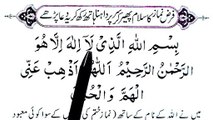 فرض نماز کا سلام پھیر کر پر داہنا ہاتھ رکھ کر یہ دعا پڑھے
بِسْمِ اللهِ الَّذِیْ لَآ اِلٰهَ اِلَّا هُوَ
الرَّحْمٰنُ الرَّحِیْمُ اَللّٰهُمَّ اَذْهِبْ عَنِّی
الْهَمَّ وَالْحُزْنَ
میں نے اللہ کے نام کے ساتھ نماز ختم کی جس کے سوا کوئی معبود